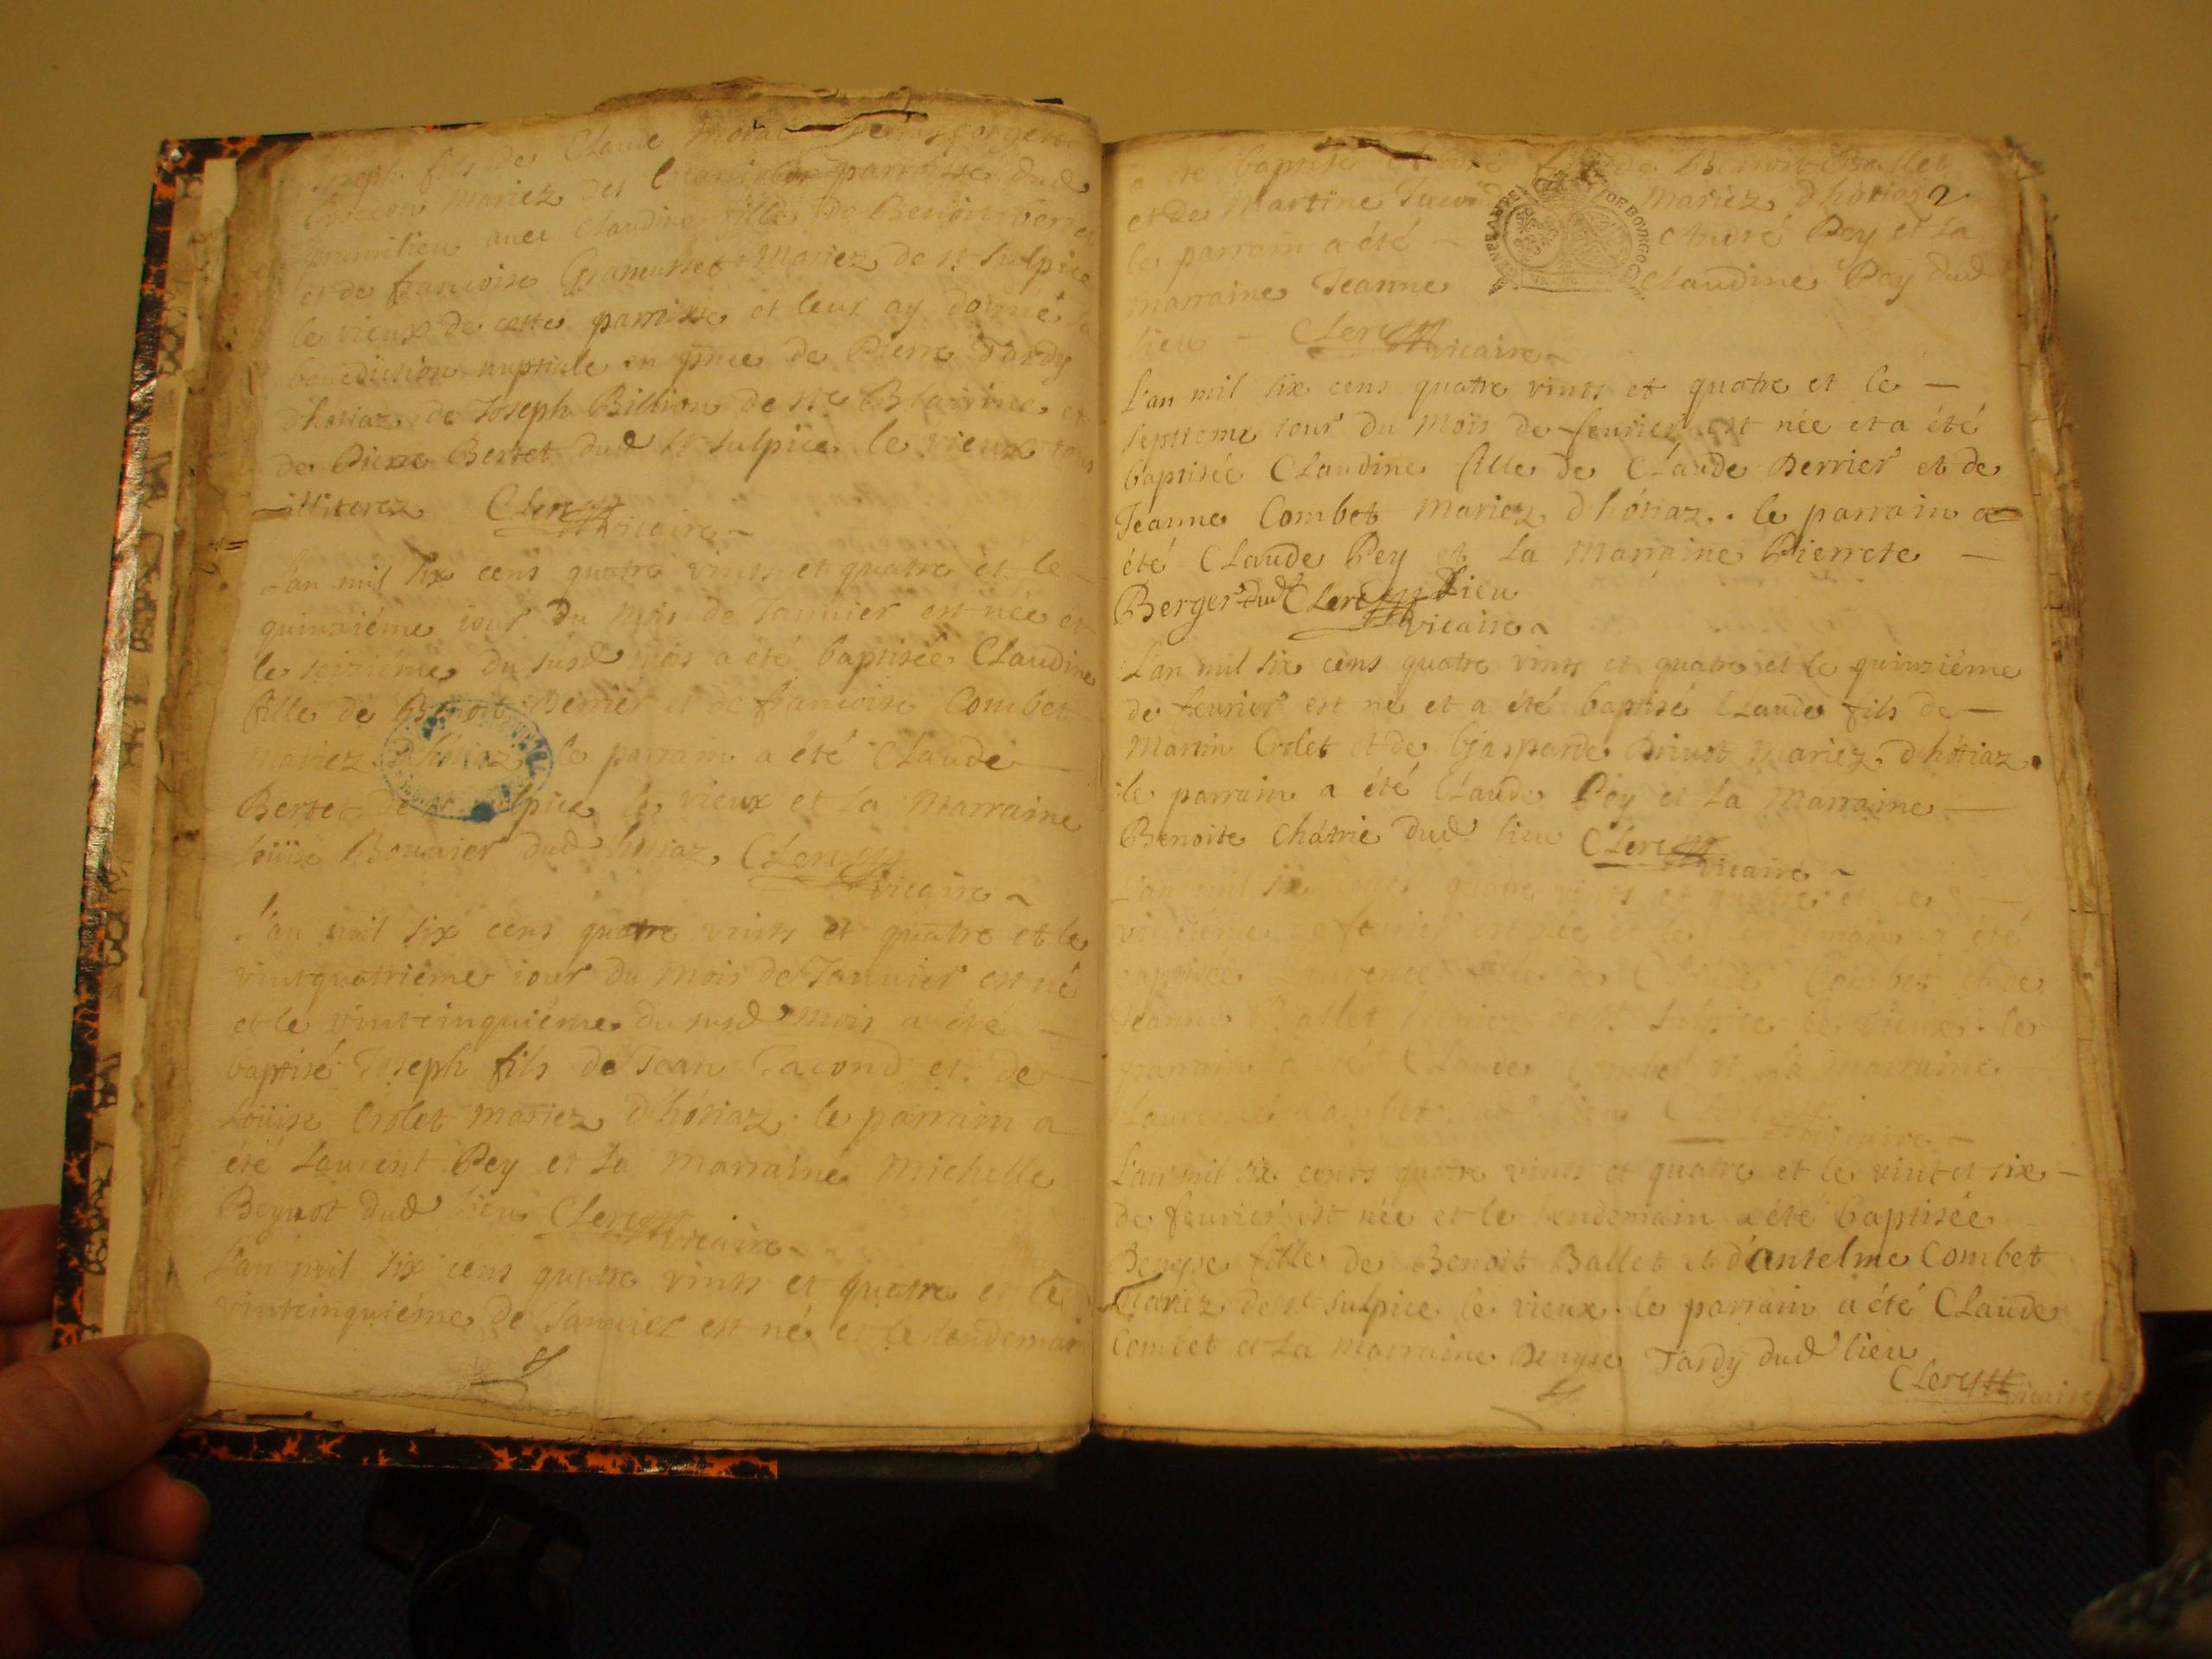 Joseph fils de Claude
mariez des parroisse dud
prumilieu avec Claudine fille de Benoit
et de francoise Gramusset Mariez de st sulpice
le vieux de cette parroisse et leur ay donné la
benediction nuptiale en pnce de Pierre Tardy
d'hotiaz, de Joseph Billion de ste Blaizine et
de Pierre Bertet dud st sulpice le vieux tous
illiterez Clerc vicaire
L'an mil six cens quatre vints et quatre et le
quinziéme iour du mois de Januier est née et
le seiziéme du susd mois a été baptisée CLaudine
fille de Benoit Berrier et de francoise Combet
mariez d'hótiaz le parrain a été CLaude
Bertet de st sulpice le vieux et La Marraine
Loüise Bouuier dud hotiaz, CLerc
vicaire
L'an mil six cens quatre vints et quatre et le
vintquatriéme iour du mois de Januier est né
et le vintcinquiéme du susd mois a été
baptisé Joseph fils de Jean Tacond et de
Loüise Crolet mariez d'hótiaz. le parrain a
été Laurent Pey et La marraine Michelle
Beynot dud lieu CLerc vicaire
L'an mil six cens quatre vints et quatre et le
vintcinquiéme de Januier est né et le lendemain
a été baptisé André fils de Benoit Ballet
et de Martine Tacond Mariez d'hótiaz 2
GEN FRANCHE TOR BOVRGOG
le parrain a été André Pey et La
marraine Jeanne Claudine Pey dud
lieu CLerc vicaire
L'an mil six cens quatre vints et quatre et le
septieme iour du Mois de feurier est née et a été
baptisée CLaudine fille de CLaude Berrier et de
Jeanne Combet Mariez d'hótiaz. le parrain a
été CLaude Pey et La Marraine Pierrete
Berger dud CLerc Lieu
vicaire
L'an mil six cens quatre vints et quatre et le quinziéme
de feurier est né et a été baptisé CLaude fils de
Martin Crolet et de Gjasparde Briuot Mariez d'hótiaz.
le parrain a été CLaude Pey et La Marraine
Benoite Chátrie dud lieu CLerc
vicaire
L'an mil six cens quatre vints et quatre et le
vintiéme de feurier est née et le lendemain a été
baptisée Laurence fille de CLaude Combet et de
Jeanne Ballet Mariez de st sulpice le vieux. le
parrain a été CLaude Combet et La marraine
Laurence Combet dud lieu CLerc
vicaire
L'an mil six cents quatre vints et quatre et le vint et six
de feurier est née et le lendemain a été baptisée
Denyse fille de Benoit Ballet et d'antelme Combet
Mariez de st sulpice le vieux. le parrain a été CLaude
Combet et La Marraine Denyse Tardy dud lieu
CLerc vicaire